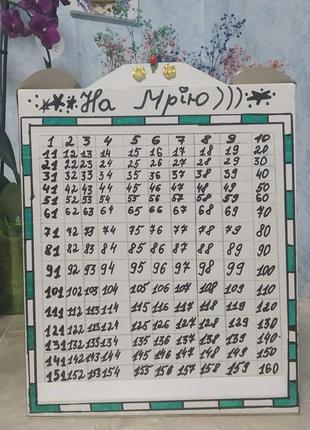 На Мрію)))
1 2 3 4 5 6 7 8 9 10
11 12 13 14 15 16 17 18 19 20
21 22 23 24 25 26 27 28 29 30
31 32 33 34 35 36 37 38 39 40
41 42 43 44 45 46 47 48 49 50
51 52 53 54 55 56 57 58 59 60
61 62 63 64 65 66 67 68 69 70
71 72 73 74 75 76 77 78 79 80
81 82 83 84 85 86 87 88 89 90
91 92 93 94 95 96 97 98 99 100
101 102 103 104 105 106 107 108 109 110
111 112 113 114 115 116 117 118 119 120
121 122 123 124 125 126 127 128 129 130
131 132 133 134 135 136 137 138 139 140
141 142 143 144 145 146 147 148 149 150
151 152 153 154 155 156 157 158 159 160